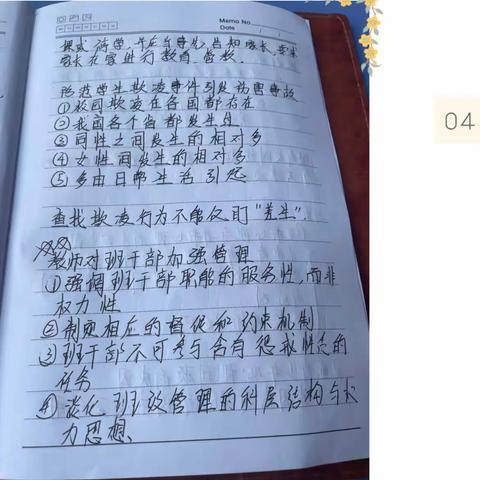 Memo No.
Date
模式 停学，并应当事先告知家长，要求
家长在家进行教育、管教。
防范学生欺凌事件引发伤害事故
①校园欺凌在各国都存在
②我国各个省都发生过
③同性之间发生的相对多
④女性间发生的相对多
⑤多由日常生活引起
查找欺凌行为不能仅盯"差生".
教师对班干部加强管理
①强调班干部职能的服务性，而非
权力性
②制定相应的督促和约束机制
③班干部不可参与含有惩戒性质的
任务
④淡化班级管理的科层结构与权
力思想.
04